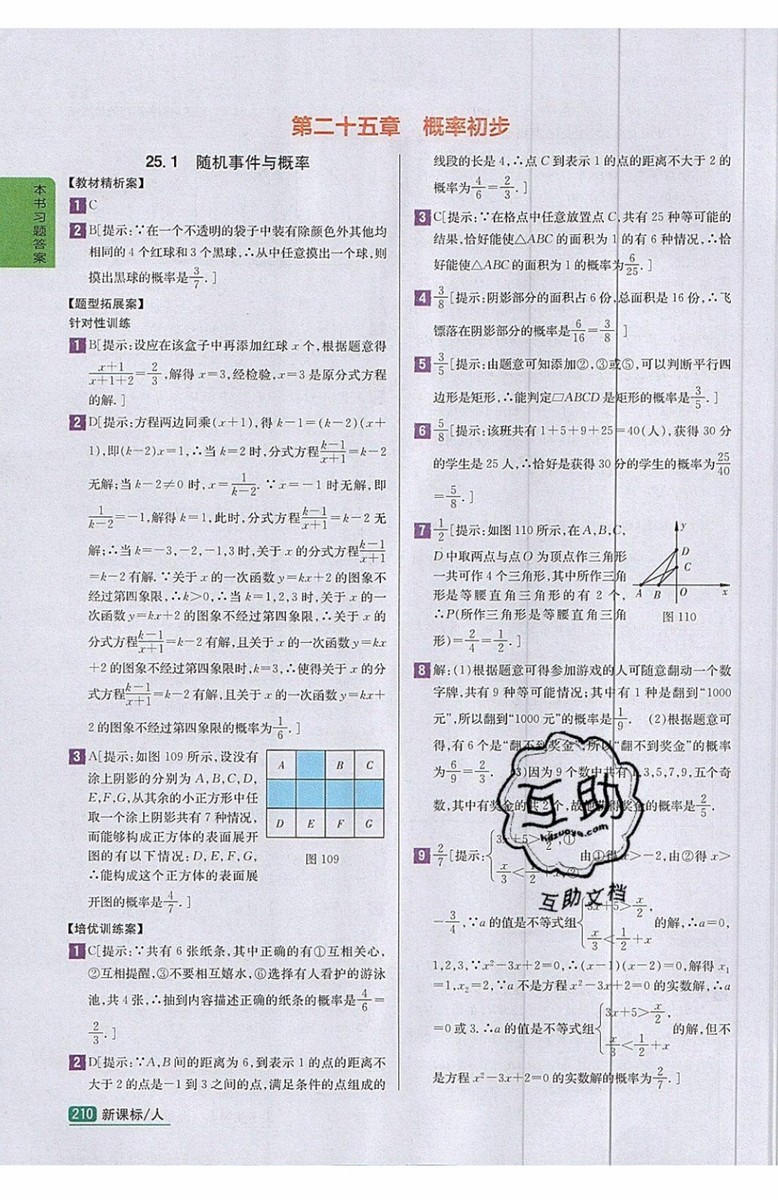 第二十五章 概率初步
本书习题答案
25.1 随机事件与概率
【教材精析案】
1 C
2 B[提示:∵在一个不透明的袋子中装有除颜色外其他均
相同的4个红球和3个黑球,∴从中任意摸出一个球,则
摸出黑球的概率是3/7.]
【题型拓展案】
针对性训练
1 B[提示:设应在该盒子中再添加红球x个,根据题意得
(x+1)/(x+1+2)=2/3,解得x=3,经检验,x=3是原分式方程
的解.]
2 D[提示:方程两边同乘(x+1),得k-1=(k-2)(x+
1),即(k-2)x=1,∴当k=2时,分式方程(k-1)/(x+1)=k-2
无解;当k-2≠0时,x=1/(k-2).∵x=-1时无解,即
1/(k-2)=-1,解得k=1,此时,分式方程(k-1)/(x+1)=k-2无
解;∴当k=-3,-2,-1,3时,关于x的分式方程(k-1)/(x+1)
=k-2有解.∵关于x的一次函数y=kx+2的图象不
经过第四象限,∴k>0,∴当k=1,2,3时,关于x的一
次函数y=kx+2的图象不经过第四象限,∴关于x的
分式方程(k-1)/(x+1)=k-2有解,且关于x的一次函数y=kx
+2的图象不经过第四象限时,k=3,∴使得关于x的分
式方程(k-1)/(x+1)=k-2有解,且关于x的一次函数y=kx+
2的图象不经过第四象限的概率为1/6.]
3 A[提示:如图109所示,设没有
涂上阴影的分别为A,B,C,D,
E,F,G,从其余的小正方形中任
取一个涂上阴影共有7种情况,
而能够构成正方体的表面展开
图的有以下情况:D,E,F,G,
∴能构成这个正方体的表面展
开图的概率是4/7.]
A B C
D E F G
图109
【培优训练案】
1 C[提示:∵共有6张纸条,其中正确的有①互相关心,
②互相提醒,③不要相互嬉水,⑥选择有人看护的游泳
池,共4张,∴抽到内容描述正确的纸条的概率是4/6=
2/3.]
2 D[提示:∵A,B间的距离为6,到表示1的点的距离不
大于2的点是-1到3之间的点,满足条件的点组成的
线段的长是4,∴点C到表示1的点的距离不大于2的
概率为4/6=2/3.]
3 C[提示:∵在格点中任意放置点C,共有25种等可能的
结果,恰好能使△ABC的面积为1的有6种情况,∴恰
好能使△ABC的面积为1的概率为6/25.]
4 3/8[提示:阴影部分的面积占6份,总面积是16份,∴飞
镖落在阴影部分的概率是6/16=3/8]
5 3/5[提示:由题意可知添加②,③或⑤,可以判断平行四
边形是矩形,∴能判定▱ABCD是矩形的概率是3/5.]
6 5/8[提示:该班共有1+5+9+25=40(人),获得30分
的学生是25人,∴恰好是获得30分的学生的概率为25/40
=5/8.]
7 1/2[提示:如图110所示,在A,B,C,
D中取两点与点O为顶点作三角形
一共可作4个三角形,其中所作三角
形是等腰直角三角形的有2个,
∴P(所作三角形是等腰直角三角
形)=2/4=1/2.]
y
D
C
A B O x
图110
8 解:(1)根据题意可得参加游戏的人可随意翻动一个数
字牌,共有9种等可能情况;其中有1种是翻到“1000
元”,所以翻到“1000元”的概率是1/9. (2)根据题意可
得,有6个是“翻不到奖金”,所以“翻不到奖金”的概率
为6/9=2/3. (3)因为9个数中共有1,3,5,7,9,五个奇
数,其中有奖金的共2个,故他得到奖金的概率是2/5.
9 2/7[提示: { 3x+5>x/2,① x/3<x/2+ 由①得x>-2,由②得x>
-3/4,∵a的值是不等式组{ 3x+5>x/2, x/3<1/2+x 的解,∴a=0,
1,2,3,∵x²-3x+2=0,∴(x-1)(x-2)=0,解得x₁
=1,x₂=2,∵a不是方程x²-3x+2=0的实数解,∴a
=0或3.∴a的值是不等式组{ 3x+5>x/2, x/3<1/2+x 的解,但不
是方程x²-3x+2=0的实数解的概率为2/7.]
互助
hdzuoye.com
互助文档
210 新课标/人